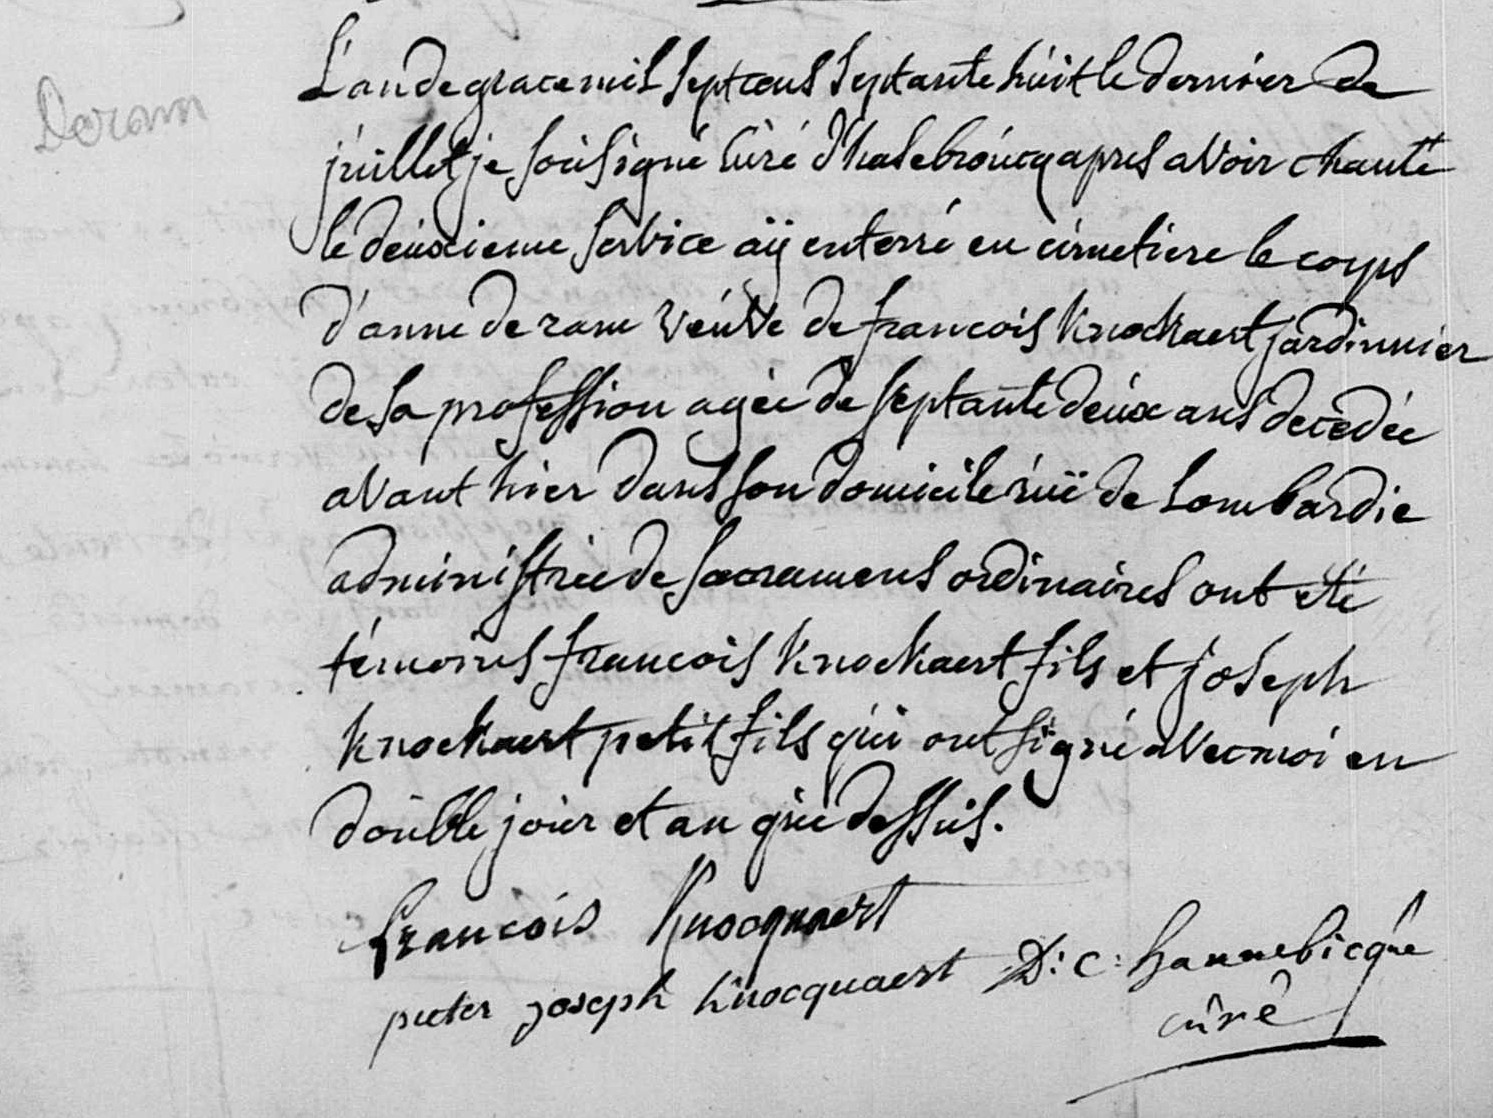 Deram
L'an de grace mil sept cens septante huit le dernier de
juillet je soúsigné cúré d'hasebroúcq apres avoir chanté
le deúxieme service aÿ enterré en cimetiere le corps
d'anne de rame veúve de francois Knockaert jardinnier
de sa profession agée de septante deúx ans decedée
avant hier dans son domicile rúë de Lombardie
administrée de sacramens ordinaires ont eté
témoins francois Knockaert fils et joseph
Knockaert petit fils qúi ont signé avec moi en
doúble joúr et an qúe dessús.
francois Knocquaert
pieter joseph knocquaert D: C: hannebicqúe
cúré